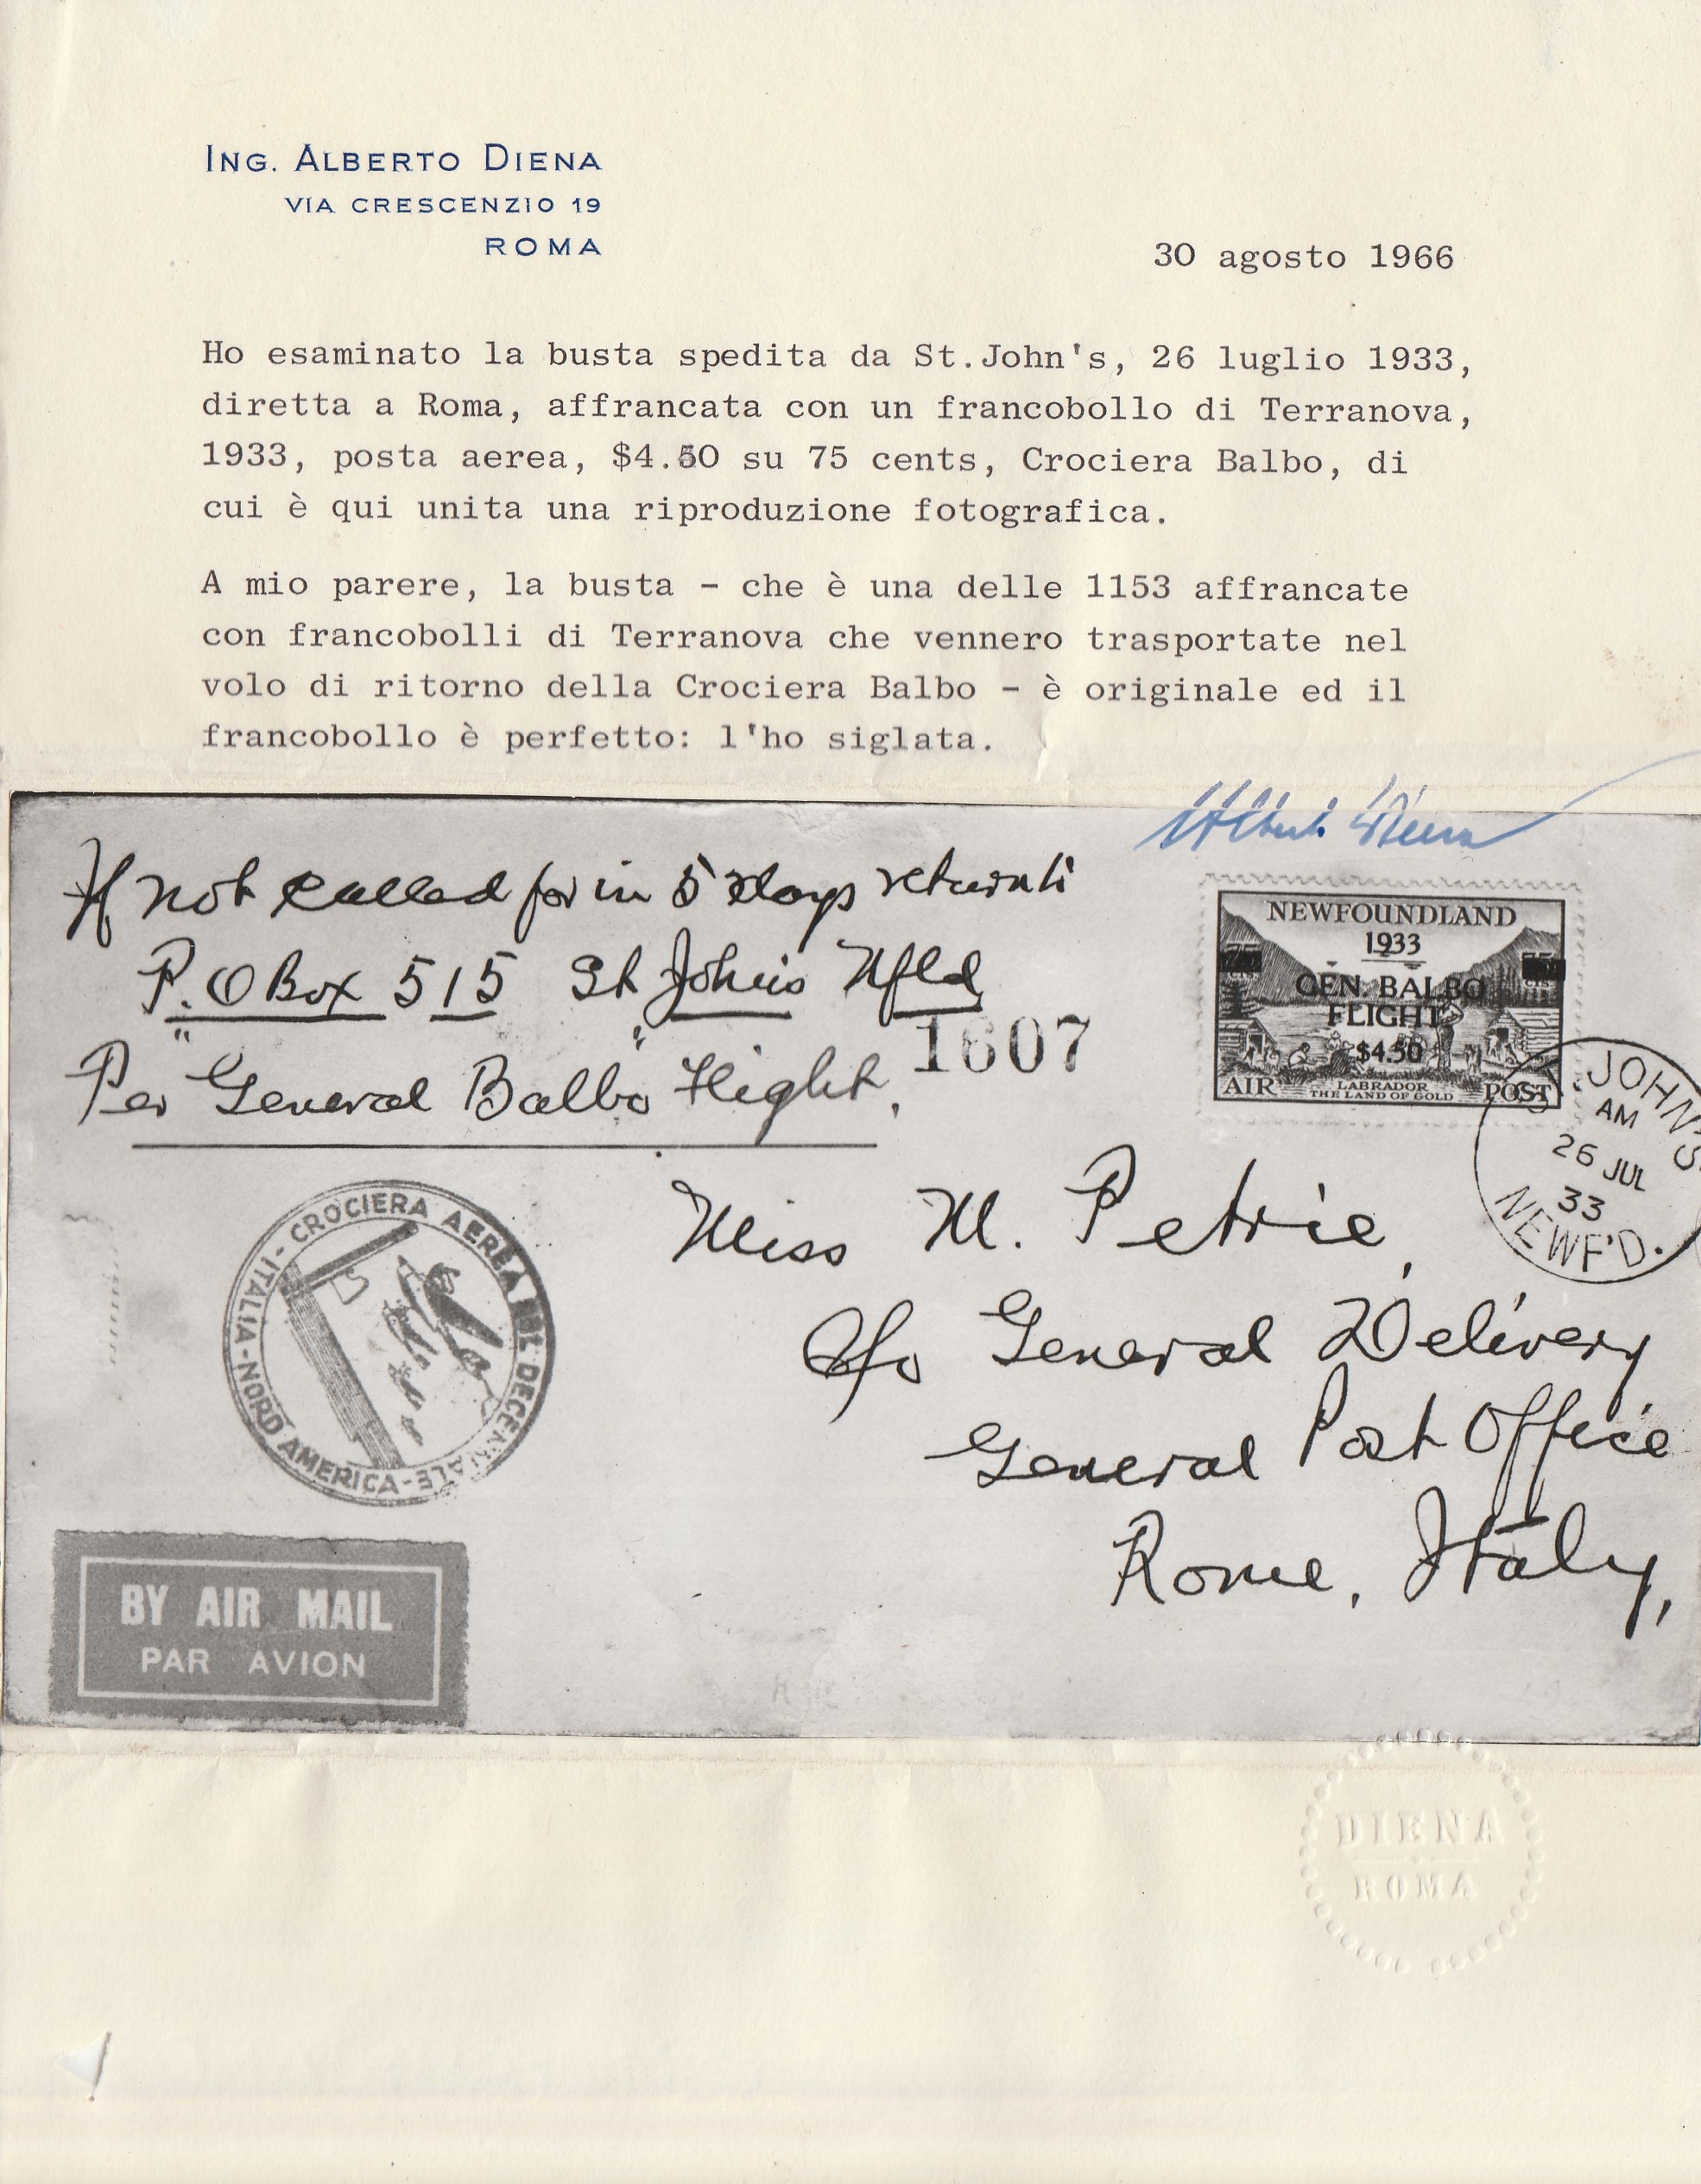 ING. ALBERTO DIENA
VIA CRESCENZIO 19
ROMA
30 agosto 1966
Ho esaminato la busta spedita da St.John's, 26 luglio 1933,
diretta a Roma, affrancata con un francobollo di Terranova,
1933, posta aerea, $4.50 su 75 cents, Crociera Balbo, di
cui è qui unita una riproduzione fotografica.
A mio parere, la busta - che è una delle 1153 affrancate
con francobolli di Terranova che vennero trasportate nel
volo di ritorno della Crociera Balbo - è originale ed il
francobollo è perfetto: l'ho siglata.
Alberto Diena
If not called for in 5 days return to
P.O Box 515 St John's Nfld
1607
Per "General Balbo" Flight.
NEWFOUNDLAND
1933
GEN. BALBO
FLIGHT
$4.50
LABRADOR
AIR THE LAND OF GOLD POST
ST. JOHN'S
AM
26 JUL
33
NEWF'D.
Miss M. Petrie,
c/o General Delivery
General Post Office
Rome, Italy,
CROCIERA AEREA DEL DECENNALE - ITALIA - NORD AMERICA -
BY AIR MAIL
PAR AVION
DIENA
ROMA